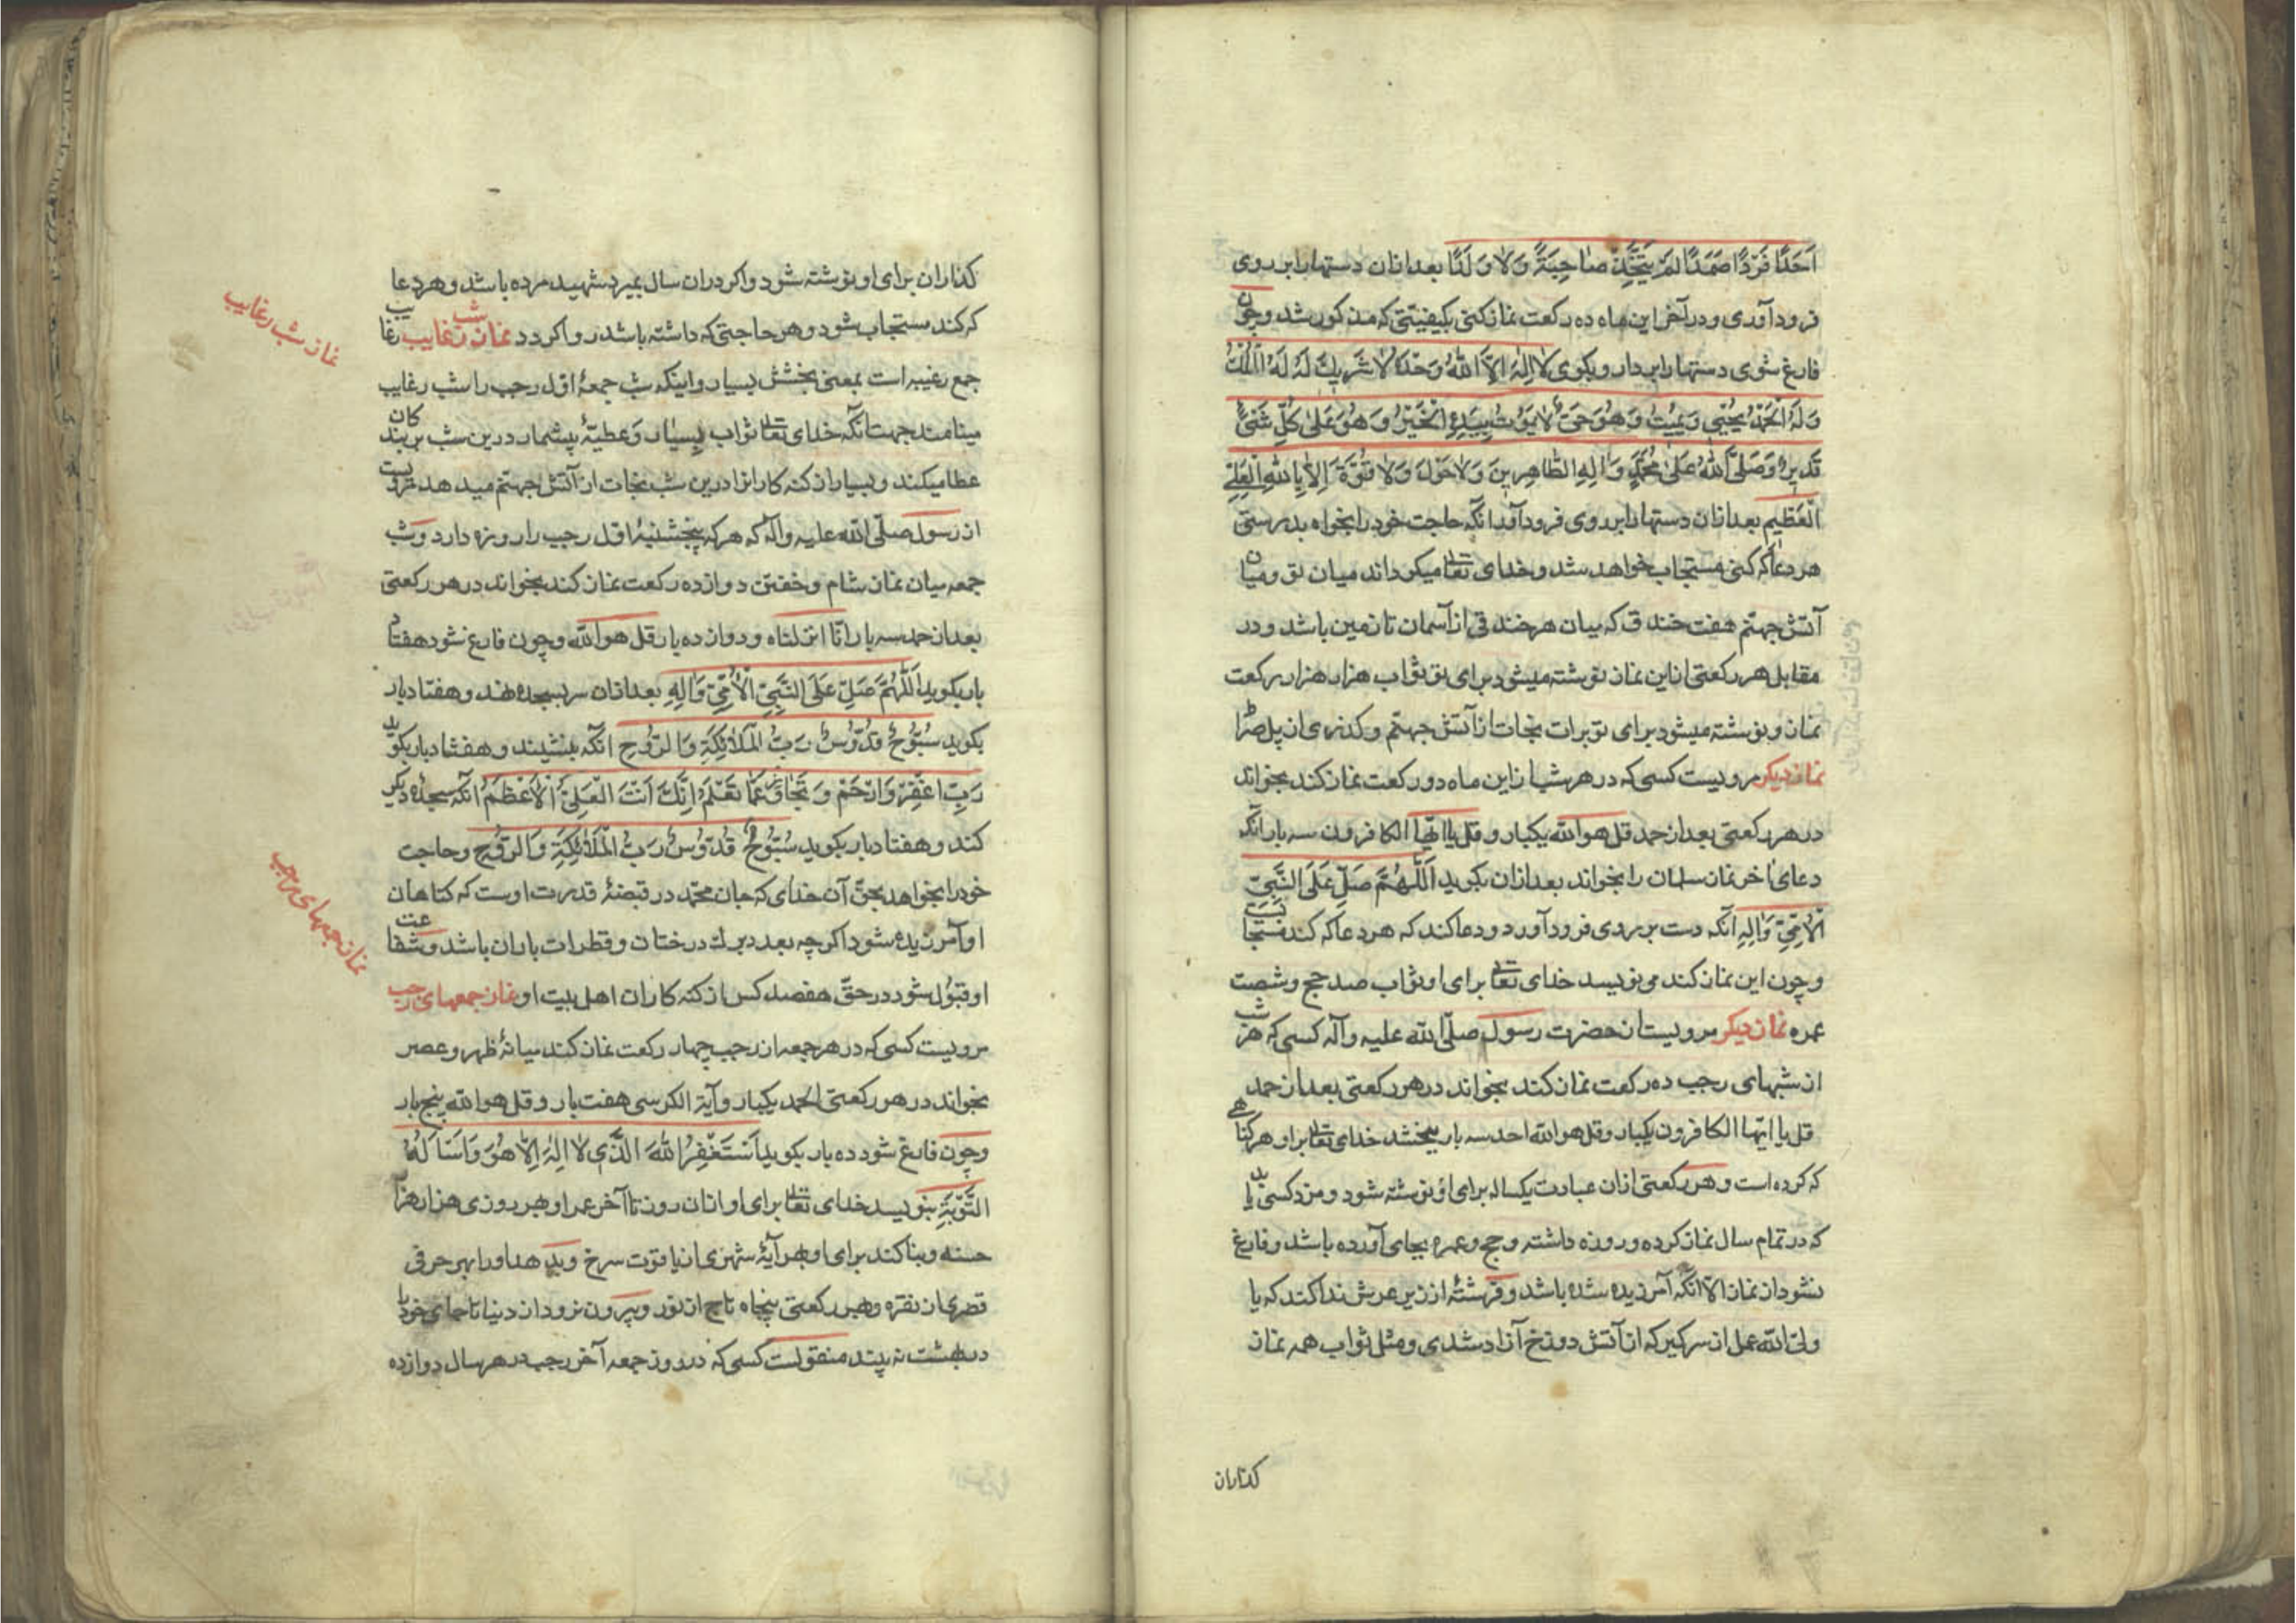 اَحَدًا فَرْدًا صَمَدًا لَمْ يَتَّخِذْ صَاحِبَةً وَلَا وَلَدًا بعد ازان دستها را بر روی
فرود آوری و در آخر این ماه ده رکعت نماز کنی بکیفیتی که مذکور شد و چون
فارغ شوی دستها را بردار و بکوی لَا اِلٰهَ اِلَّا اللّٰهُ وَحْدَهُ لَا شَرِيكَ لَهُ لَهُ الْمُلْكُ
وَلَهُ الْحَمْدُ يُحْيِي وَيُمِيتُ وَهُوَ حَيٌّ لَا يَمُوتُ بِيَدِهِ الْخَيْرُ وَهُوَ عَلٰى كُلِّ شَيْءٍ
قَدِيرٌ وَصَلَّى اللّٰهُ عَلٰى مُحَمَّدٍ وَاٰلِهِ الطَّاهِرِينَ وَلَا حَوْلَ وَلَا قُوَّةَ اِلَّا بِاللّٰهِ الْعَلِيِّ
الْعَظِيمِ بعد ازان دستها را بر روی فرود آور انکه حاجت خود را بخواه بدرستی
هر دعا که کنی مستجاب خواهد شد و خدای تعالی میکرداند میان تو و میان
آتش جهنّم هفت خندق که میان هر خندقی از آسمان تا زمین باشد و در
مقابل هر رکعتی از این نماز نوشته میشود برای تو ثواب هزار هزار رکعت
نماز و نوشته میشود برای تو برات نجات از آتش جهنّم و کذری از پل صراط
نماز دیکر مرویست کسی که در هر شب از این ماه دو رکعت نماز کند بخواند
در هر رکعتی بعد از حمد قل هو الله یکبار و قل یا ایها الکافرون سه بار انکه
دعای اخر نماز سلمان را بخواند بعد ازان بکوید اَللّٰهُمَّ صَلِّ عَلَى النَّبِيِّ
الْاُمِّيِّ وَاٰلِهِ انکه دست بر روی فرود آورد و دعا کند که هر دعا که کند مستجابست
و چون این نماز کند می نویسد خدای تعالی برای او ثواب صد حج و شصت
عمره نماز دیکر مرویست از حضرت رسول صلّی الله علیه و آله کسی که هر شب
از شبهای رجب ده رکعت نماز کند بخواند در هر رکعتی بعد از حمد
قل یا ایها الکافرون یکبار و قل هو الله احد سه بار ببخشد خدای تعالی بر او هر کناهی
که کرده است و هر رکعتی ازان عبادت یکساله برای او نوشته شود و مزد کسی یابد
که در تمام سال نماز کرده و روزه داشته و حج و عمره بجای آورده باشد و فارغ
نشود از نماز الا انکه آمرزیده شده باشد و فرشتهٔ از زیر عرش ندا کند که یا
ولیّ الله عمل از سر کیر که از آتش دوزخ آزاد شدی و مثل ثواب همه نماز
کذاران
کذاران برای او نوشته شود و اکر دران سال بمیرد شهید مرده باشد و هر دعا
که کند مستجاب شود و هر حاجتی که داشته باشد روا کردد نماز شب رغایب رغایب
نماز شب رغایب
جمع رغیبه است بمعنی بخشش بسیار و اینکه شب جمعهٔ اوّل رجب را شب رغایب
مینامند جهت انکه خدای تعالی ثواب بسیار و عطیهٔ بیشمار درین شب بر بندکان
عطا میکند و بسیار از کنه کاران را درین شب نجات از آتش جهنّم میدهد مرویست
از رسول صلّی الله علیه و آله که هر که پنجشنبهٔ اوّل رجب را روزه دارد و شب
جمعه میان نماز شام و خفتن دوازده رکعت نماز کند بخواند در هر رکعتی
بعد از حمد سه بار انّا انزلناه و دوازده بار قل هو الله و چون فارغ شود هفتاد
بار بکوید اَللّٰهُمَّ صَلِّ عَلَى النَّبِيِّ الْاُمِّيِّ وَاٰلِهِ بعد ازان سر بسجده نهد و هفتاد بار
بکوید سُبُّوحٌ قُدُّوسٌ رَبُّ الْمَلَائِكَةِ وَالرُّوحِ انکه بنشیند و هفتاد بار بکوید
رَبِّ اغْفِرْ وَارْحَمْ وَتَجَاوَزْ عَمَّا تَعْلَمُ اِنَّكَ اَنْتَ الْعَلِيُّ الْاَعْظَمُ انکه سجده دیکر
کند و هفتاد بار بکوید سُبُّوحٌ قُدُّوسٌ رَبُّ الْمَلَائِكَةِ وَالرُّوحِ و حاجت
خود را بخواهد بحقّ آن خدای که جان محمّد در قبضهٔ قدرت اوست که کناهان
او آمرزیده شود اکر چه بعدد برک درختان و قطرات باران باشد و شفاعت
او قبول شود در حقّ هفصد کس از کنه کاران اهل بیت او نماز جمعهای رجب
نماز جمعهای رجب
مرویست کسی که در هر جمعه از رجب چهار رکعت نماز کند میانهٔ ظهر و عصر
بخواند در هر رکعتی الحمد یکبار و آیة الکرسی هفت بار و قل هو الله پنج بار
و چون فارغ شود ده بار بکوید اَسْتَغْفِرُ اللّٰهَ الَّذِي لَا اِلٰهَ اِلَّا هُوَ وَاَسْاَلُهُ
التَّوْبَةَ بنویسد خدای تعالی برای او ازان روز تا آخر عمر او هر روزی هزار هزار
حسنه و بنا کند برای او بهر آیهٔ شهری از یاقوت سرخ و بدهد او را بهر حرفی
قصری از نقره و بهر رکعتی پنجاه تاج از نور و بیرون نرود از دنیا تا جای خود را
در بهشت نه بیند منقولست کسی که در روز جمعه آخر رجب در هر سال دوازده